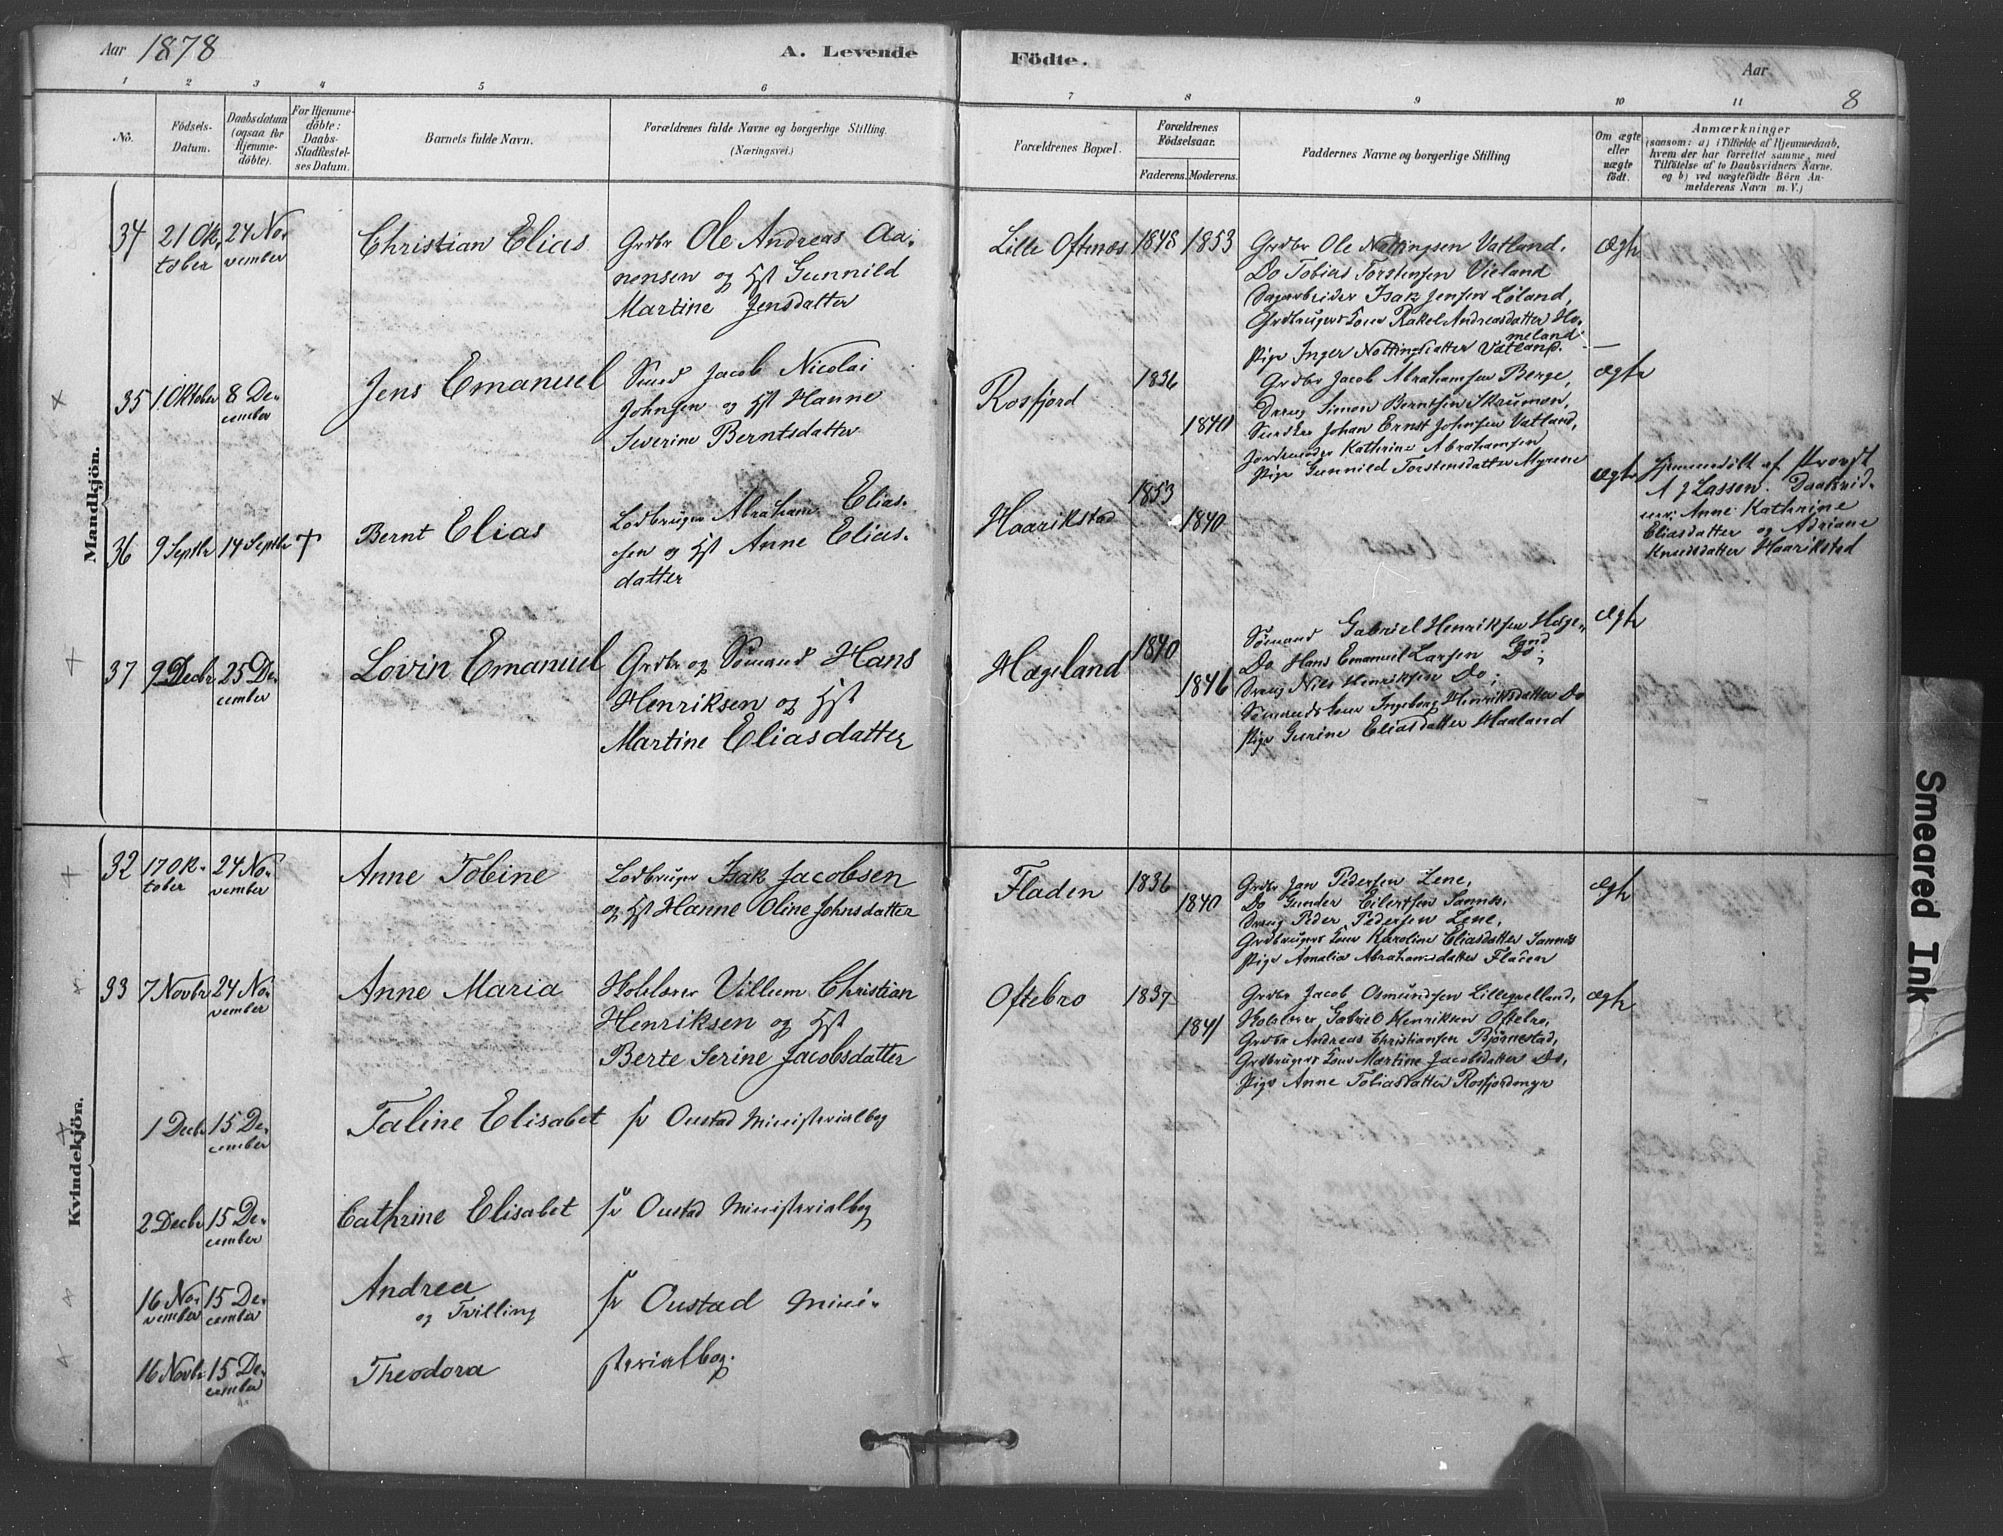 Aar 1878
A. Levende
Födte.
Aar
8
1 2 3 4 5 6 7 8 9 10 11
No.
Födsels-
Datum.
Daabsdatum
(ogsaa för
Hjemme-
döbte).
For Hjemme-
döbte:
Daabs-
Stadfæstel-
ses Datum.
Barnets fulde Navn.
Forældrenes fulde Navne og borgerlige Stilling.
(Næringsvei.)
Forældrenes Bopæl.
Forældrenes
Födselsaar.
Faderens. Moderens.
Faddernes Navne og borgerlige Stilling
Om ægte
eller
uægte
födt.
Anmærkninger
(saasom: a) i Tilfælde af Hjemmedaab,
hvem der har forrettet samme, med
Tilföielse af to Daabsvidners Navne,
og b) ved uægtefödte Börn An-
melderens Navn m. V.)
Mandkjön.
34
21 Ok-
tober
24 No-
vember
Christian Elias
Grdbr Ole Andreas Aa-
nensen og Hst Gunnild
Martine Jensdatter
Lille Oftnes
1848
1853
Grdbr Ole Nottingsen Vatland.
Do Tobias Torstensen Vieland
Sagarbeider Isak Jensen Løland,
Grdbrugers Kone Rakel Andreasdatter Ho-
meland
Pige Inger Nottingsdatter Vatland.
Ægte
35
1 Oktober
8 De-
cember
Jens Emanuel
Smed Jacob Nicolai
Johnsen og Hst Hanne
Severine Berntsdatter
Rosfjord
1836
1840
Grdbr Jacob Abrahamsen Berge,
Dreng Simon Berntsen Skaumon,
Snedker Johan Ernst Johnsen Vatland,
Jordmoder Kathrine Abrahamsen
Pige Gunnild Torstensdatter Myrene
Ægte
36
9 Septbr
14 Septbr
+
Bernt Elias
Lodbruger Abraham Elias-
sen og Hst Anne Elias-
datter
Haarikstad
1853
1840
Ægte
Hjemmedöbt af Provst
A J Lassen. Daabsvid-
ner: Anne Kathrine
Eliasdatter og Adriane
Knudsdatter Haarikstad
37
9 Decbr
25 De-
cember
Lovin Emanuel
Grdbr og Sømand Hans
Henriksen og Hst
Martine Eliasdatter
Hægeland
1840
1846
Sømand Gabriel Henriksen Hæge-
land
Do Hans Emanuel Larsen Do,
Dreng Nils Henriksen Do,
Sømands Kone Ingeborg Henriksdatter Do
Pige Gurine Eliasdatter Haaland
Ægte
Kvindekjön.
32
17 Ok-
tober
24 No-
vember
Anne Tobine
Lodbruger Isak Jacobsen
og Hst Hanne Oline Johnsdatter
Fladen
1836
1840
Grdbr Jan Pedersen Lene,
Do Gunder Eilertsen Sannes,
Dreng Peder Pedersen Lene,
Grdbrugers Kone Karoline Eliasdatter Sannes
Pige Amalia Abrahamsdatter Fladen
Ægte
33
7 Novbr
24 No-
vember
Anne Maria
Holslærer Villum Christian
Henriksen og Hst
Berte Serine Jacobsdatter
Oftebro
1837
1841
Grdbr Jacob Osmundsen Lillegvelland,
Holslærer Gabriel Henriksen Oftebro,
Grdbr Andreas Christiansen Bjørnestad,
Grdbrugers Kone Martine Jacobsdatter Do,
Pige Anne Tobiasdatter Rosfjordmyr
Ægte
1 Decbr
15 De-
cember
Taline Elisabet
se Oustad Ministerialbog
2 Decbr
15 De-
cember
Cathrine Elisabet
se Oustad Ministerialbog
16 No-
vember
15 De-
cember
Andrea
og Tvilling
se Oustad Mini-
16 Novbr
15 De-
cember
Theodora
sterialbog.
Smeared Ink